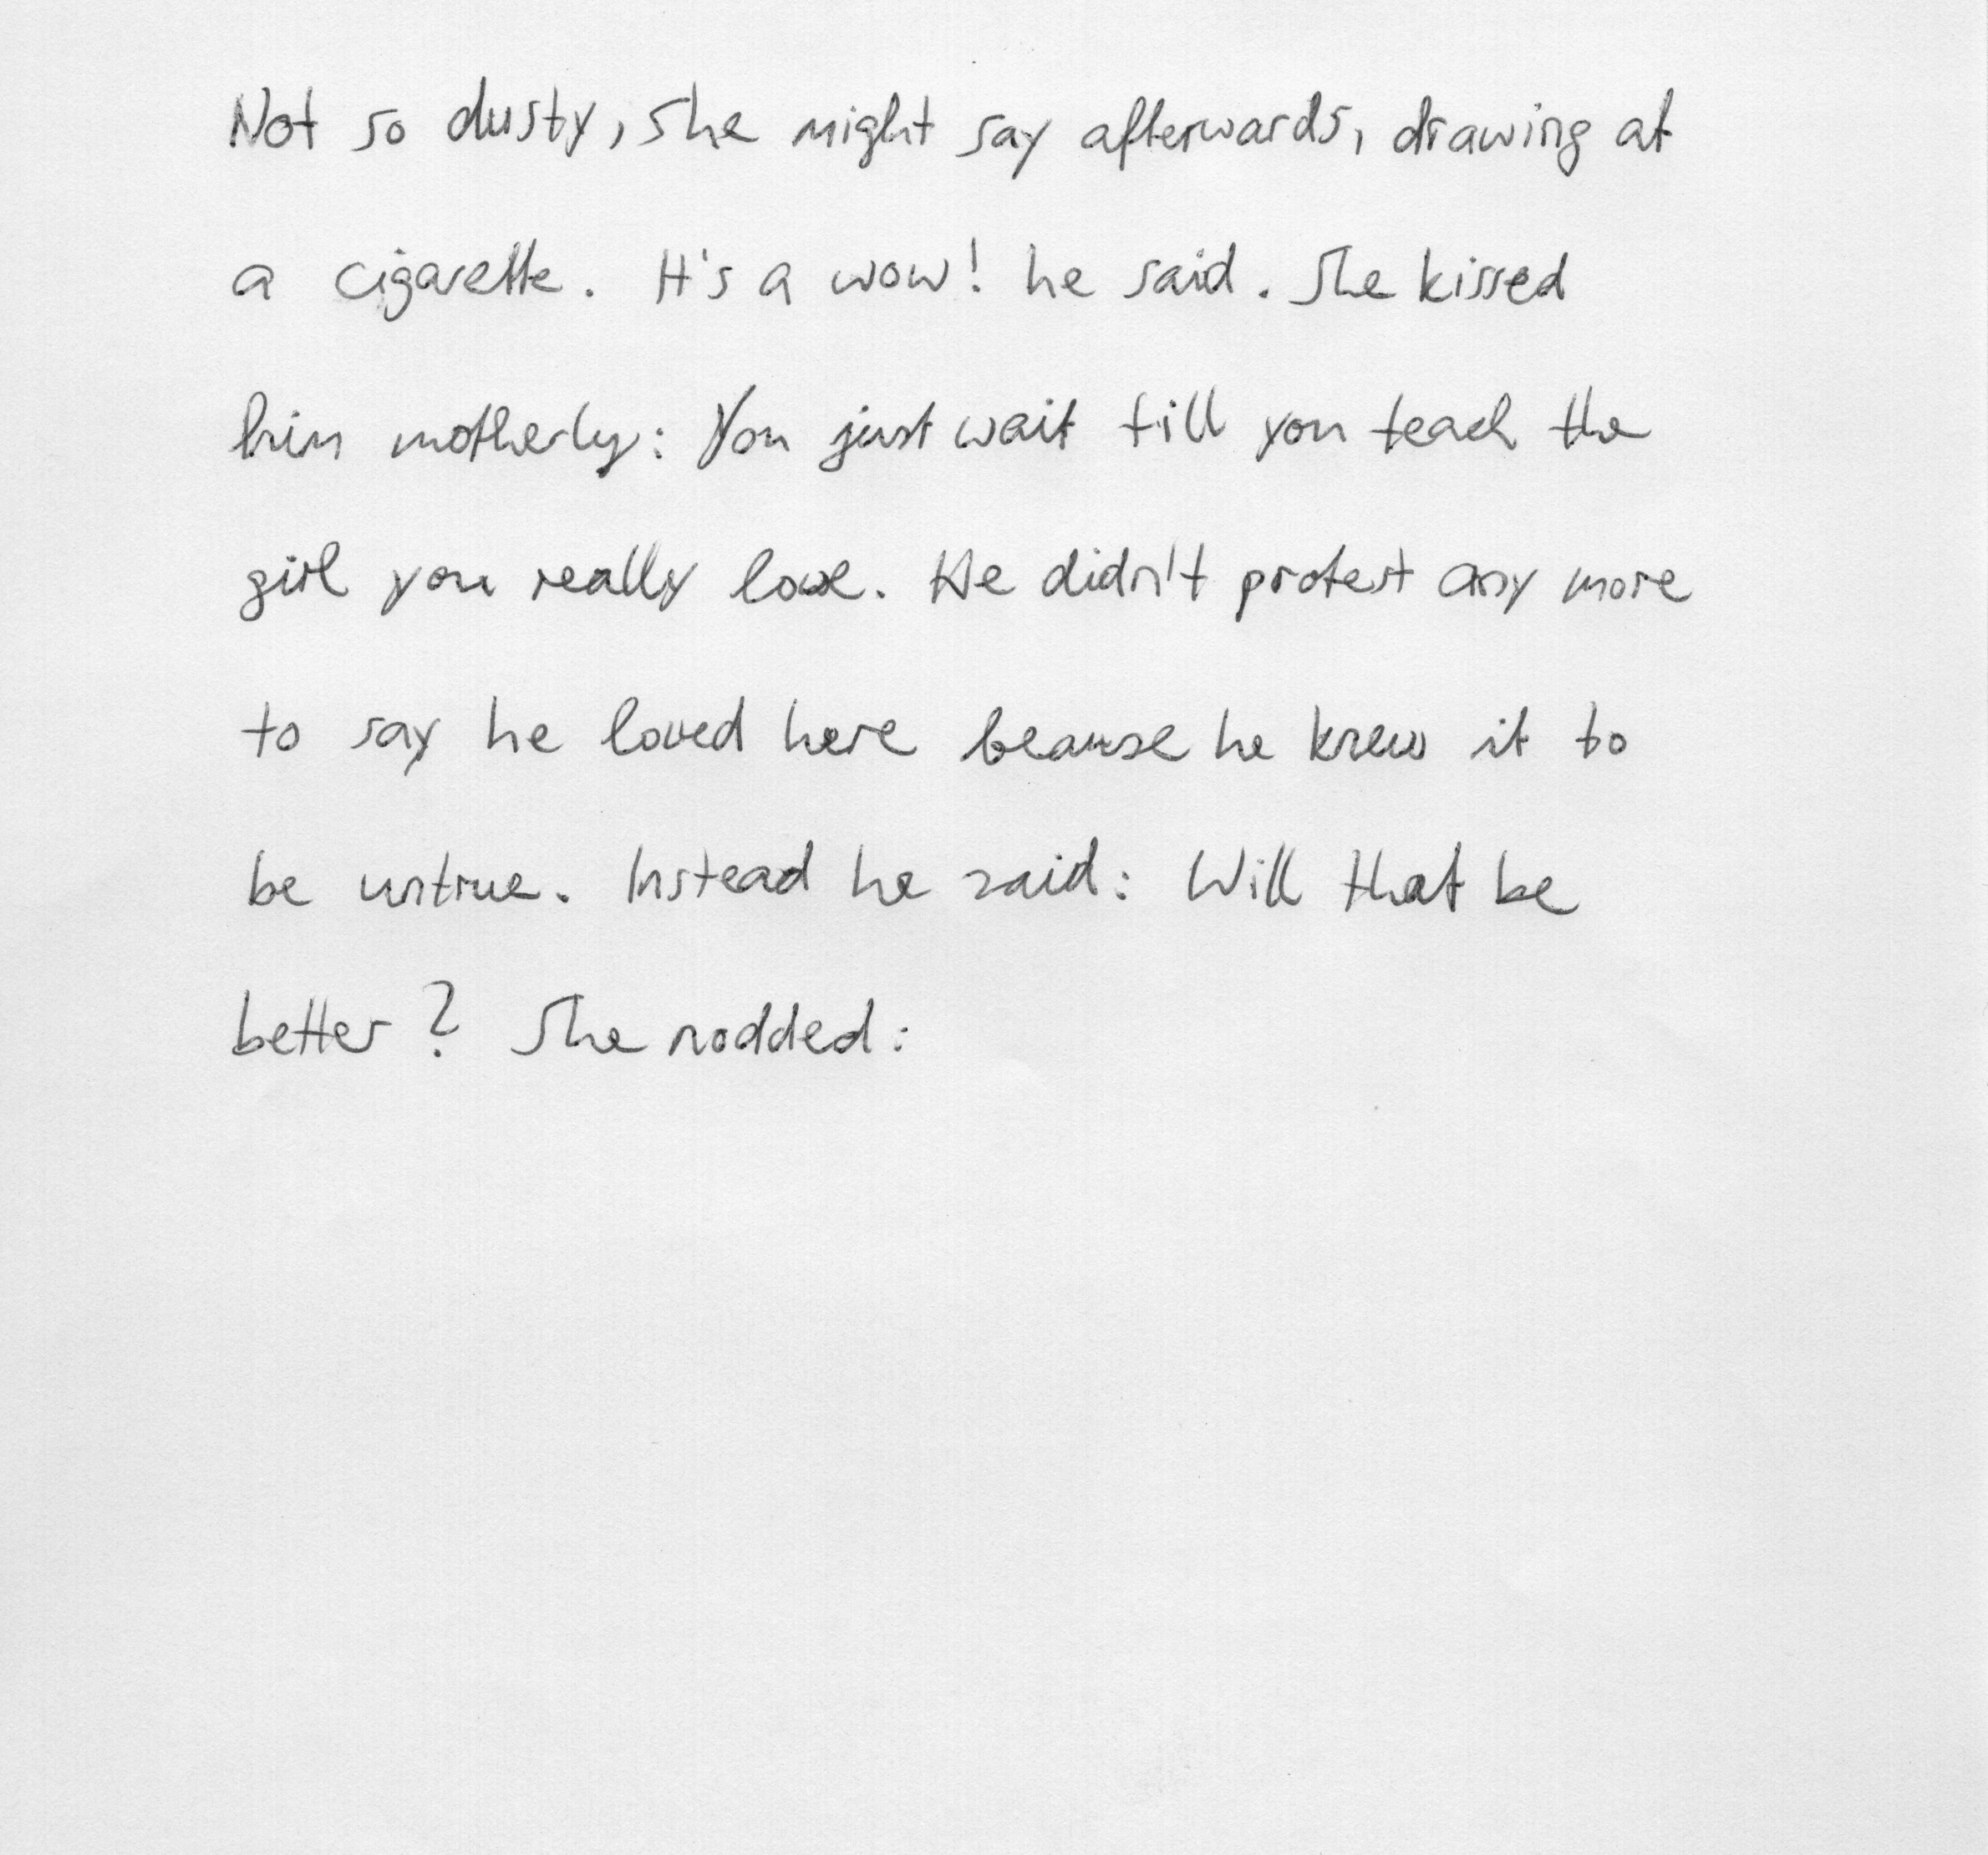 Not so dusty, she might say afterwards, drawing at
a cigarette. It's a wow! he said. She kissed
him motherly: You just wait till you teach the
girl you really love. He didn't protest any more
to say he loved here beause he knew it to
be untrue. Instead he said: Will that be
better? She nodded: